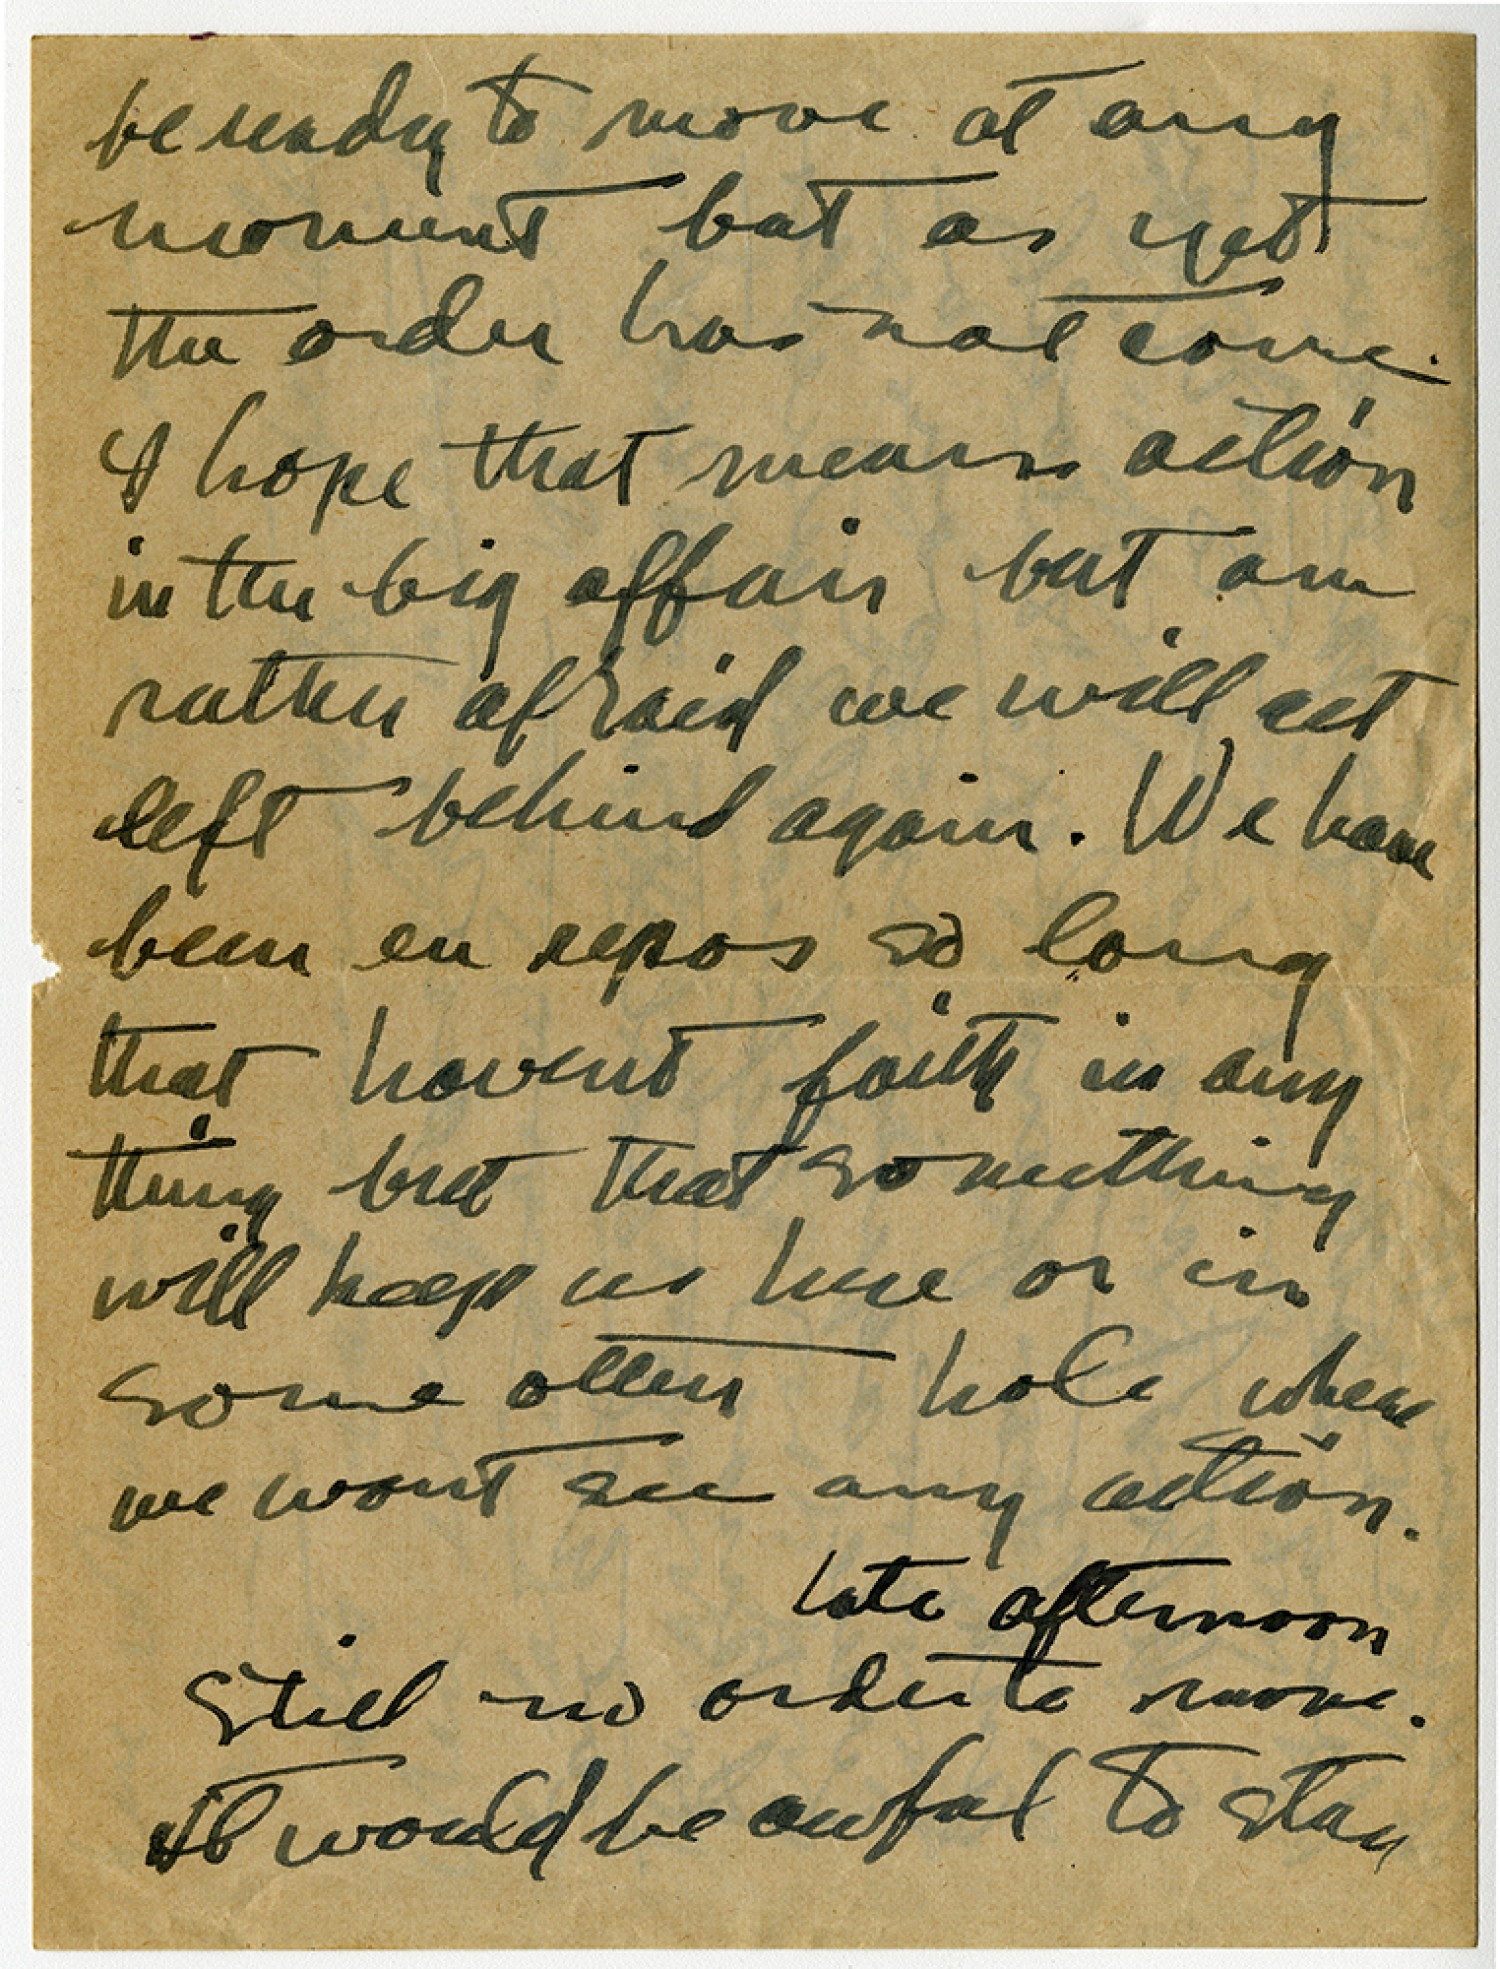 be ready to move at any
moment but as yet
the order has not come.
I hope that means action
in the big affair but am
rather afraid we will get
left behind again. We have
been en repos so long
that havent faith in any
thing but that something
will keep us here or in
some other hole where
we wont see any action.
Late afternoon
Still no order to move.
It would be awful to stay